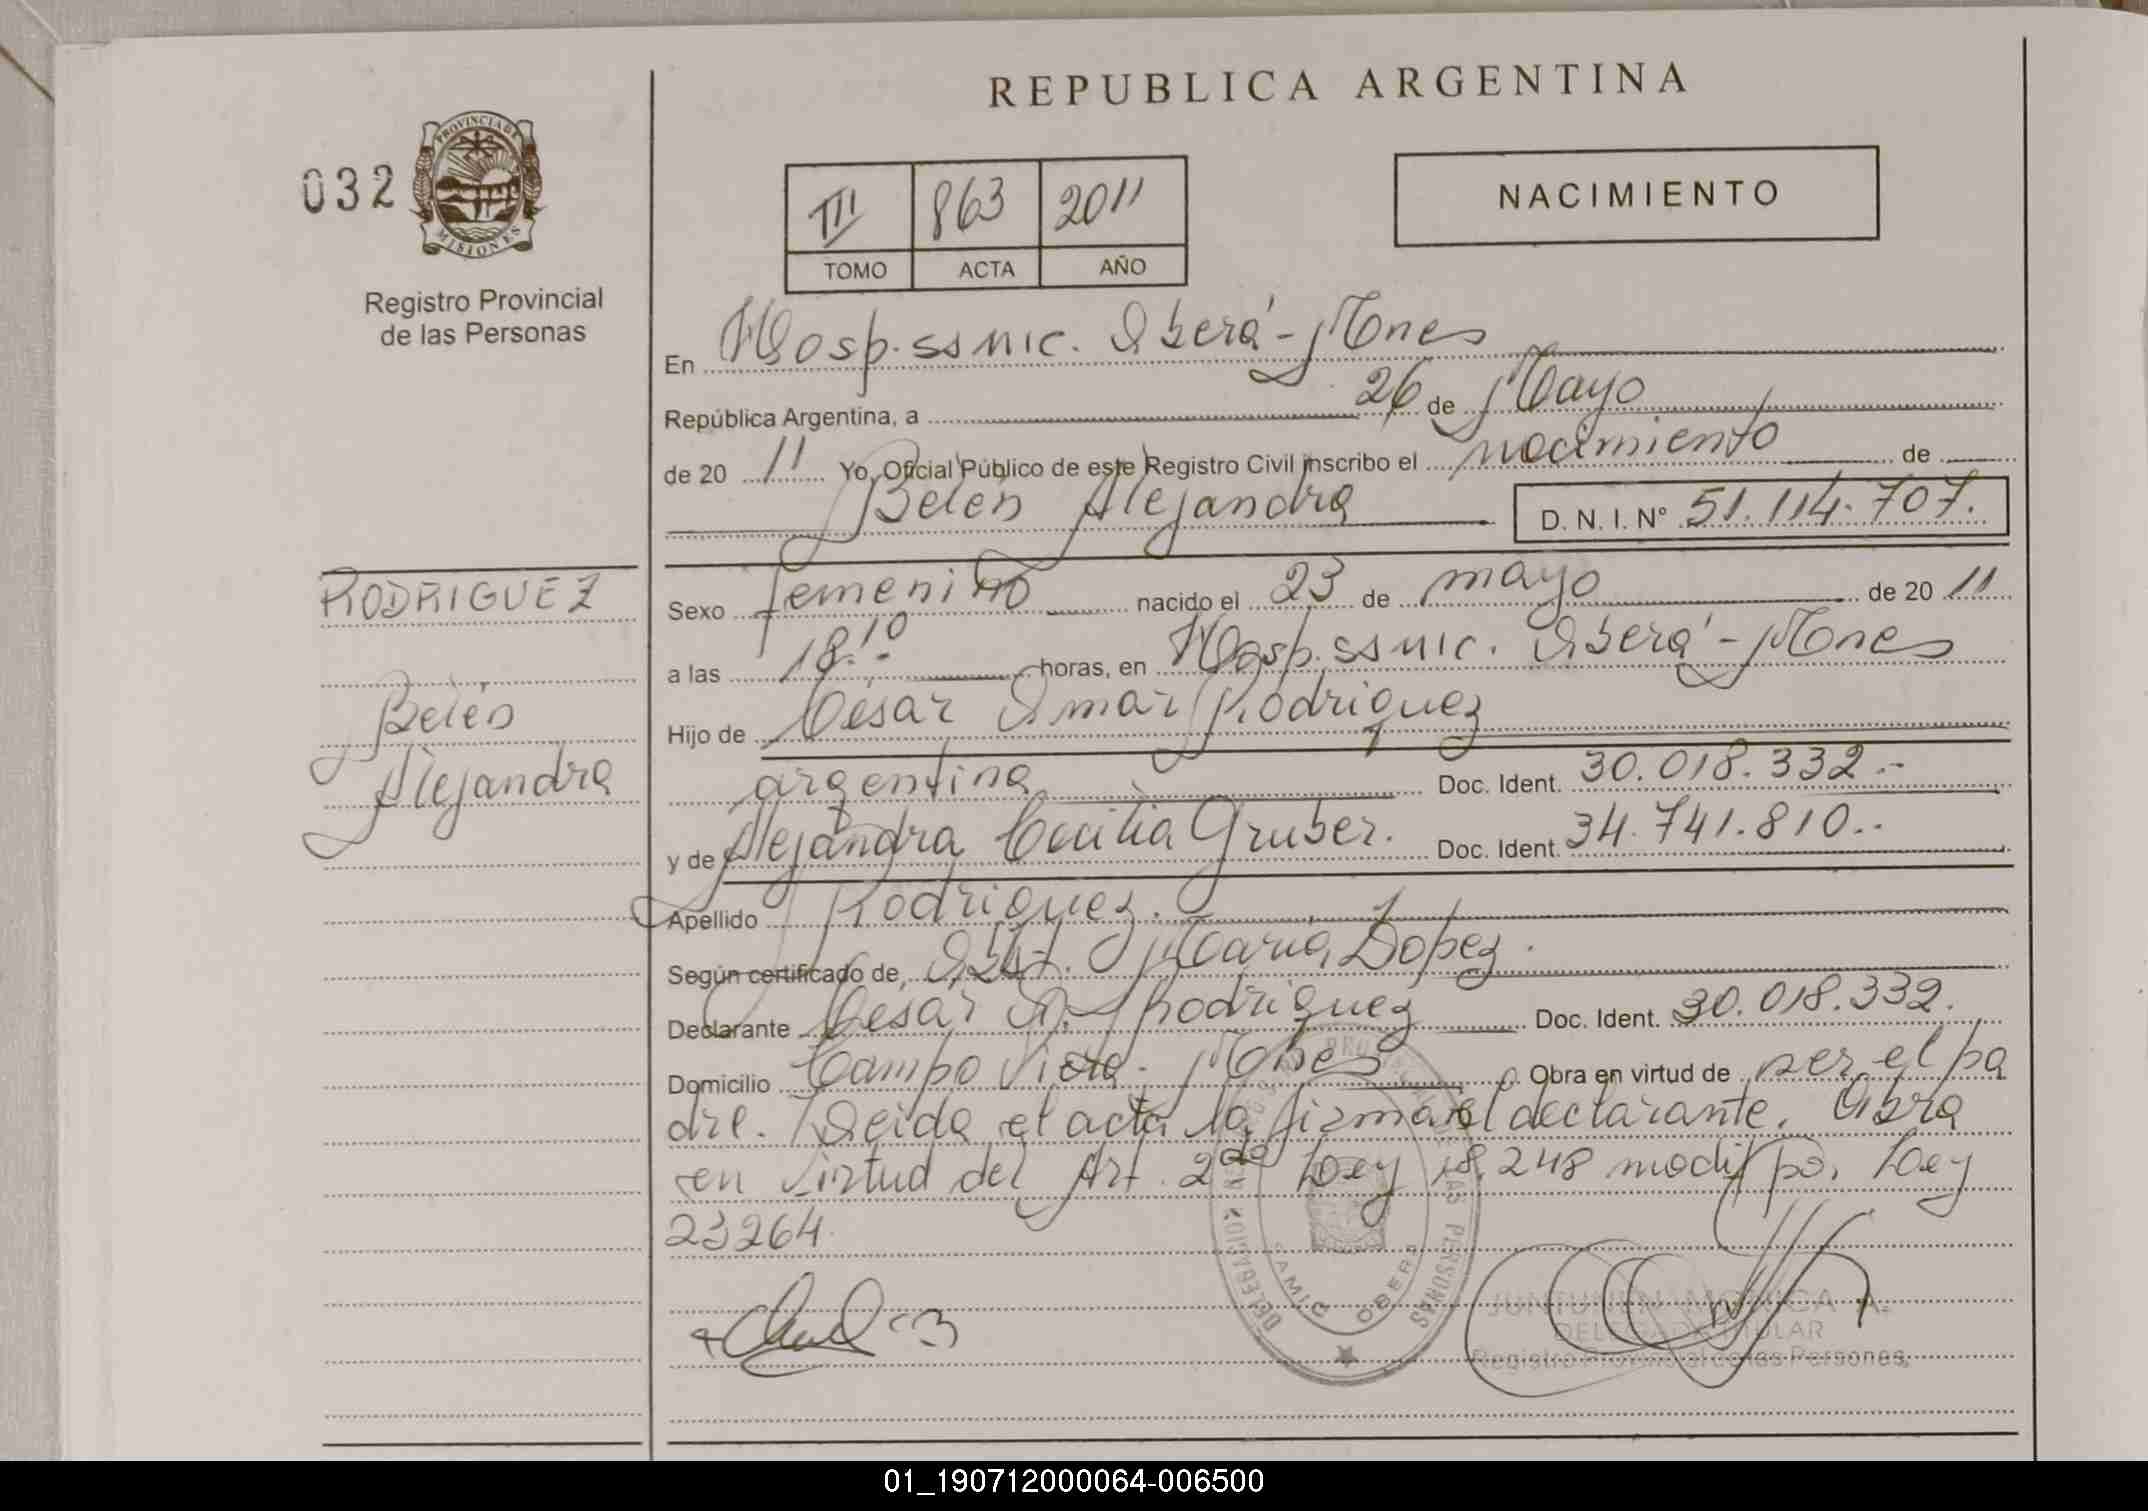 REPUBLICA ARGENTINA
032
PROVINCIA DE
MISIONES
Registro Provincial
de las Personas
III 863 2011
TOMO ACTA AÑO
NACIMIENTO
En Hosp. ss mic. Oberá - Mnes
República Argentina, a 26 de Mayo
de 20 11 Yo, Oficial Público de este Registro Civil inscribo el nacimiento de
Belén Alejandra D. N. I. Nº 51.114.707.
RODRIGUEZ
Belén
Alejandra
Sexo femenino nacido el 23 de mayo de 20 11
a las 18:10 horas, en Hosp. ss mic. Oberá - Mnes
Hijo de César Omar Rodriguez
argentina Doc. Ident. 30.018.332.-
y de Alejandra Cecilia Gruber. Doc. Ident. 34.741.810..
Apellido Rodriguez.
Según certificado de, Obst. María Lopez.
Declarante Cesar O. Rodriguez Doc. Ident. 30.018.332.
Domicilio Campo Viera - Mnes Obra en virtud de ser el pa
dre. Leida el acta la firma el declarante. Obra
en virtud del Art. 2do Ley 18.248 modif po. Ley
23264
DELEGACION REGISTRO PROVINCIAL DE LAS PERSONAS
SAMIC OBERA
JUNTUNEN MONICA A.
DELEGADA TITULAR
Registro Provincial de las Personas
01_190712000064-006500